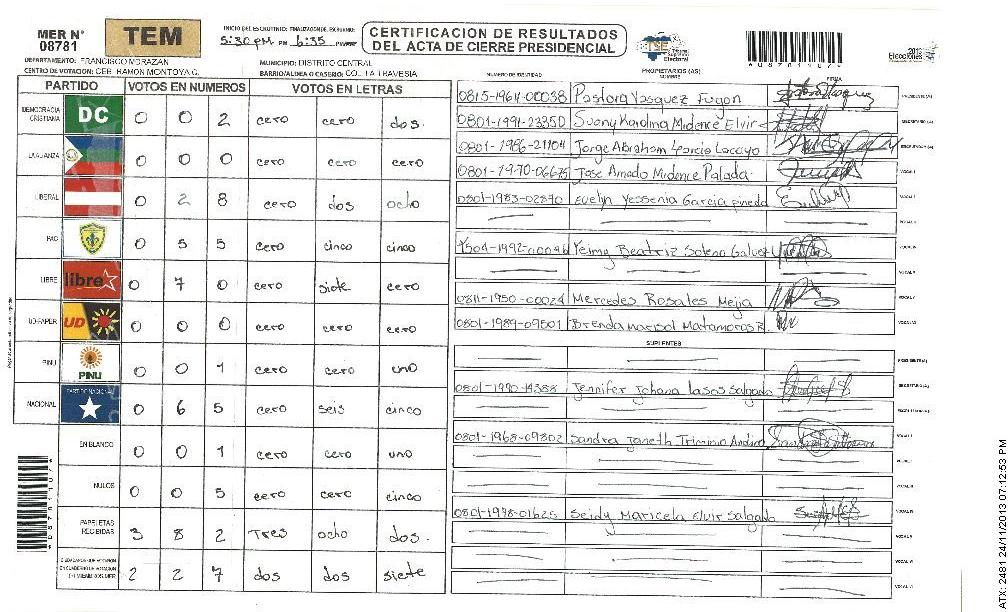 MER N° 08781
TEM
INICIO DEL ESCRUTINIO: FINALIZACION DEL ESCRUTINIO:
5:30 PM PM 6:35 PM
CERTIFICACION DE RESULTADOS
DEL ACTA DE CIERRE PRESIDENCIAL
TSE Tribunal Supremo Electoral
Elecciones 2013
DEPARTAMENTO: FRANCISCO MORAZAN
MUNICIPIO: DISTRITO CENTRAL
CENTRO DE VOTACION: CEB. RAMON MONTOYA C.
BARRIO/ALDEA O CASERIO: COL. LA TRAVESIA
PARTIDO VOTOS EN NUMEROS VOTOS EN LETRAS
DEMOCRACIA CRISTIANA DC 0 0 2 cero cero dos.
LA ALIANZA 0 0 0 cero cero cero
LIBERAL 0 2 8 cero dos ocho
PAC 0 5 5 cero cinco cinco
LIBRE libre 0 7 0 cero siete cero
UD-FAPER UD 0 0 0 cero cero cero
PINU PINU 0 0 1 cero cero uno
NACIONAL PARTIDO NACIONAL 0 6 5 cero seis cinco
EN BLANCO 0 0 1 cero cero uno
NULOS 0 0 5 cero cero cinco
PAPELETAS RECIBIDAS 3 8 2 Tres ocho dos.
CIUDADANOS QUE VOTARON EN CUADERNO DE VOTACION (+) MIEMBROS MER 2 2 7 dos dos siete
NUMERO DE IDENTIDAD PROPIETARIOS (AS) NOMBRE FIRMA
0815-1964-00038 Pastora Vasquez Fugon PRESIDENTE (A)
0801-1991-23350 Suany Karolina Midence Elvir SECRETARIO (A)
0801-1986-21104 Jorge Abraham Garcia Lacayo ESCRUTADOR (A)
0801-1970-06675 Jose Amado Midence Palada VOCAL I
0801-1983-02890 Evelyn Yessenia Garcia pineda
VOCAL II
1504-1992-00046 Yeimy Beatriz Soleno Galvez VOCAL III
0811-1950-00024 Mercedes Rosales Mejia VOCAL V
0801-1989-09501 Brenda Marisol Matamoros R. VOCAL VI
SUPLENTES
PRESIDENTE (A)
0801-1990-14388 Jennifer Johana Lasos Salgado SECRETARIO (A)
ESCRUTADOR (A)
0801-1968-09802 Sandra Janeth Triminio Andino VOCAL I
0801-1998-01625 Seidy Maricela Elvir Salgado
VOCAL V
VOCAL VI
ATX: 2481 24/11/2013 07:12:53 PM